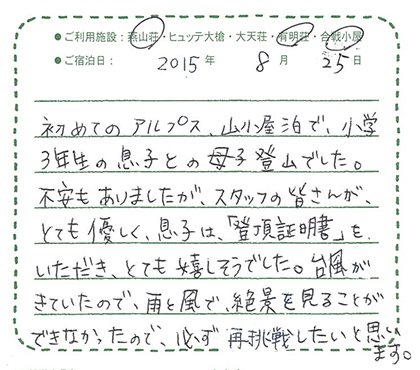 ●ご利用施設：燕山荘・ヒュッテ大槍・大天荘・有明荘・合戦小屋
●ご宿泊日： 2015 年 8 月 25 日
初めてのアルプス、山小屋泊で、小学
3年生の息子との母子登山でした。
不安もありましたが、スタッフの皆さんが、
とても優しく、息子は、「登頂証明書」を
いただき、とても嬉しそうでした。台風が
きていたので、雨と風で、絶景を見ることが
できなかったので、必ず再挑戦したいと思い
ます。